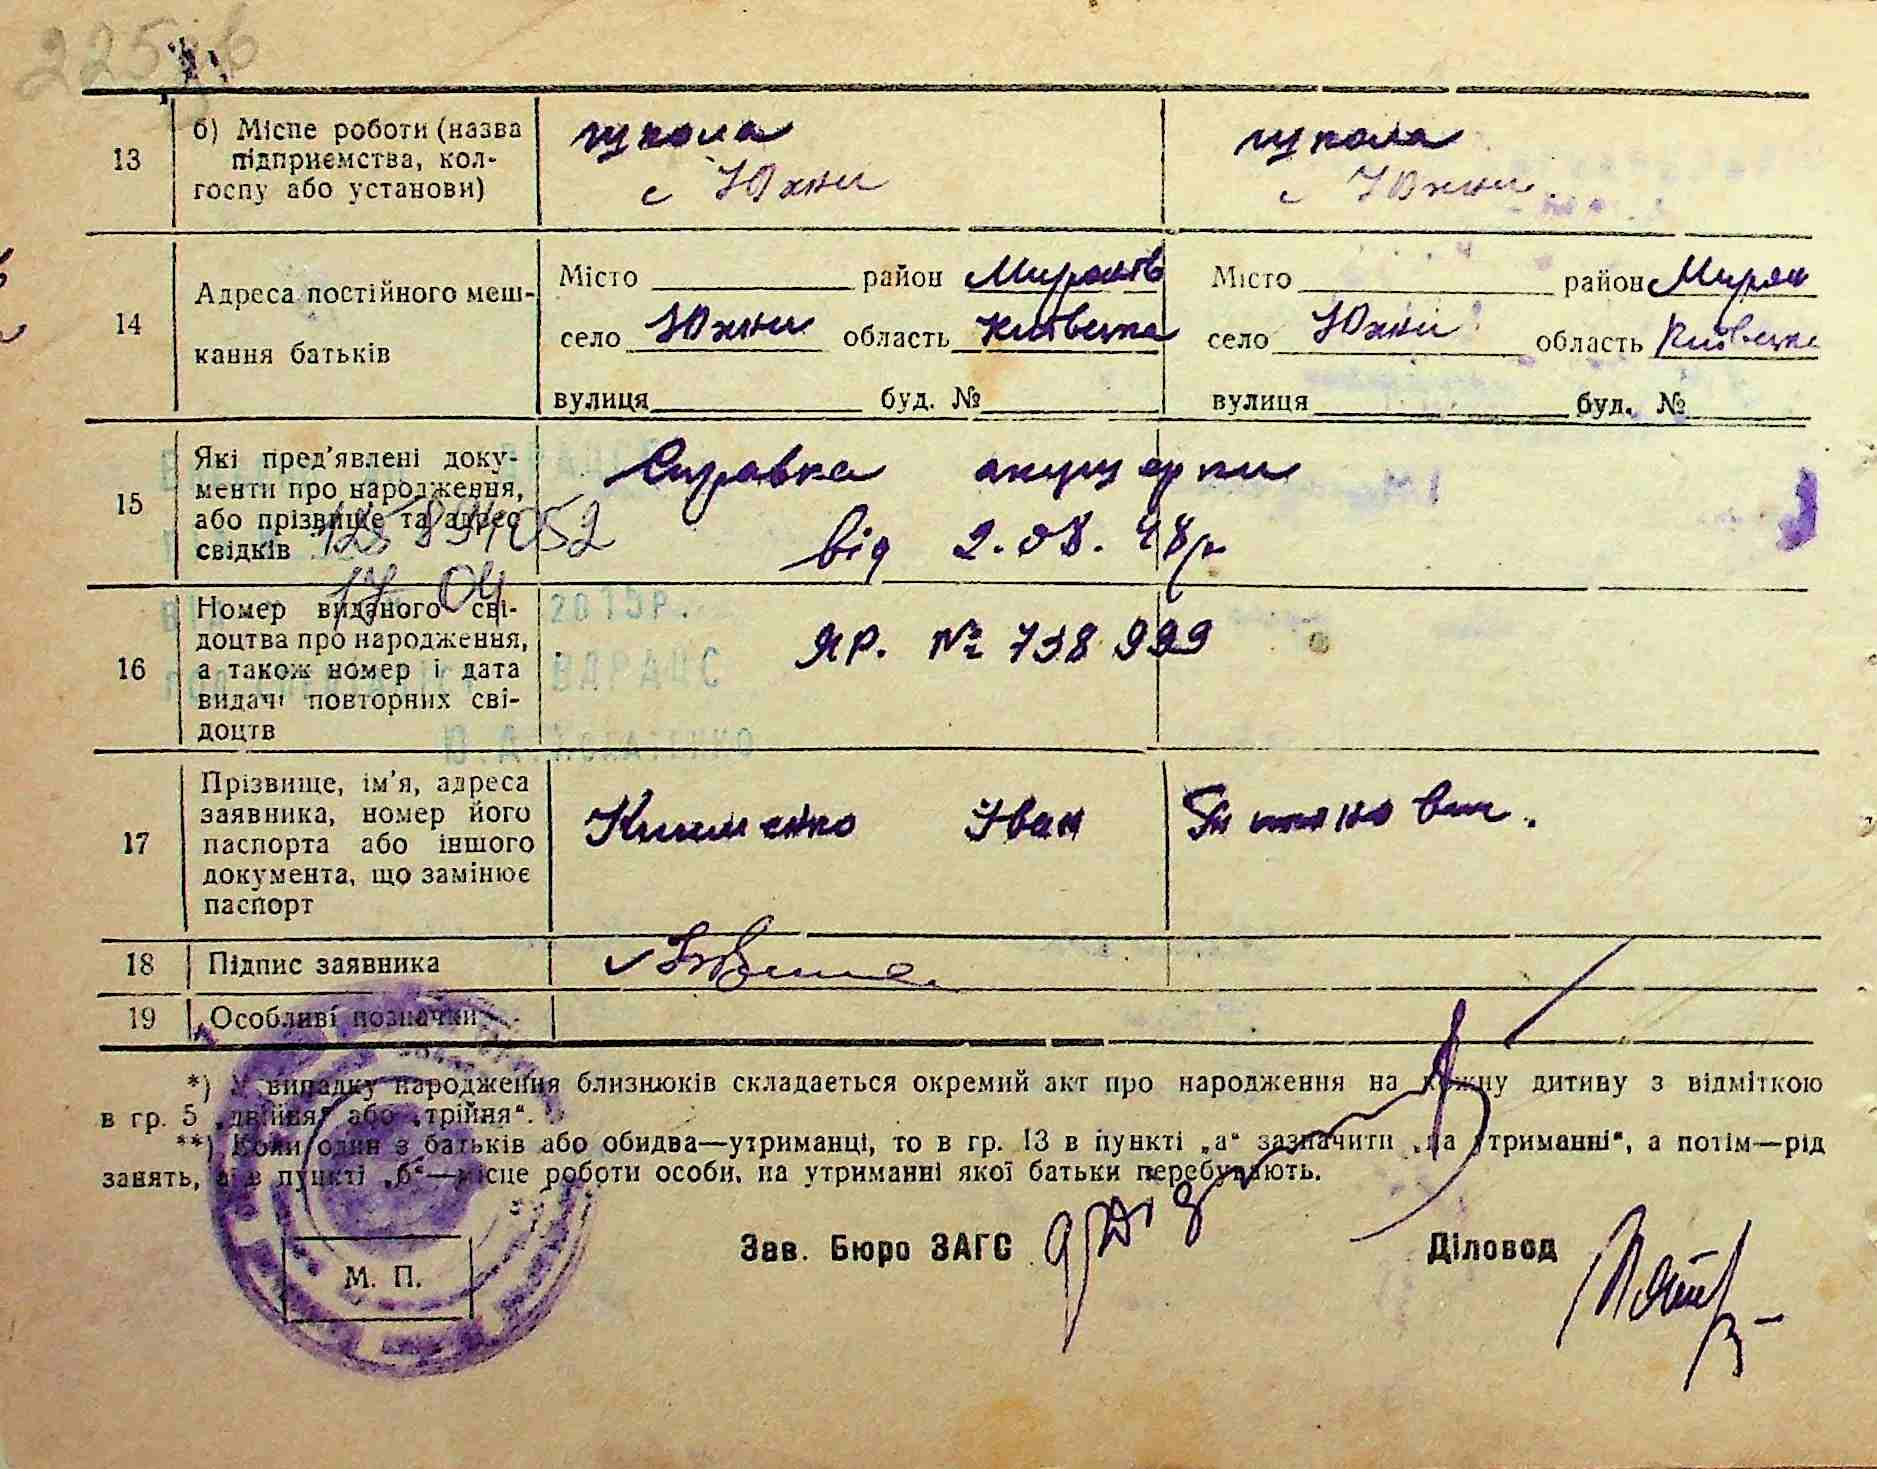 225
13
б) Місце роботи (назва
підприємства, кол-
госпу або установи)
школа
с Юхни
школа
с Юхни
14
Адреса постійного меш-
кання батьків
Місто район Миронів
село Юхни область Київська
вулиця буд. №
Місто район Мирон
село Юхни область Київська
вулиця буд. №
15
Які пред'явлені доку-
менти про народження,
або прізвище та адрес
свідків
Справка акушерки
від 2.08.48р
17 04
2015р.
16
Номер виданого сві-
доцтва про народження,
а також номер і дата
видачі повторних сві-
доцтв
ЯР. № 738999
ВДРАЦС
17
Прізвище, ім'я, адреса
заявника, номер його
паспорта або іншого
документа, що замінює
паспорт
Клименко Іван
18
Підпис заявника
19
Особливі позначки
*) У випадку народження близнюків складається окремий акт про народження на кожну дитину з відміткою
в гр. 5 „двійня" або „трійня".
**) Коли один з батьків або обидва—утриманці, то в гр. 13 в пункті „а" зазначити „на утриманні", а потім—рід
занять, а в пункті „б"—місце роботи особи, на утриманні якої батьки перебувають.
Зав. Бюро ЗАГС
Діловод
М. П.